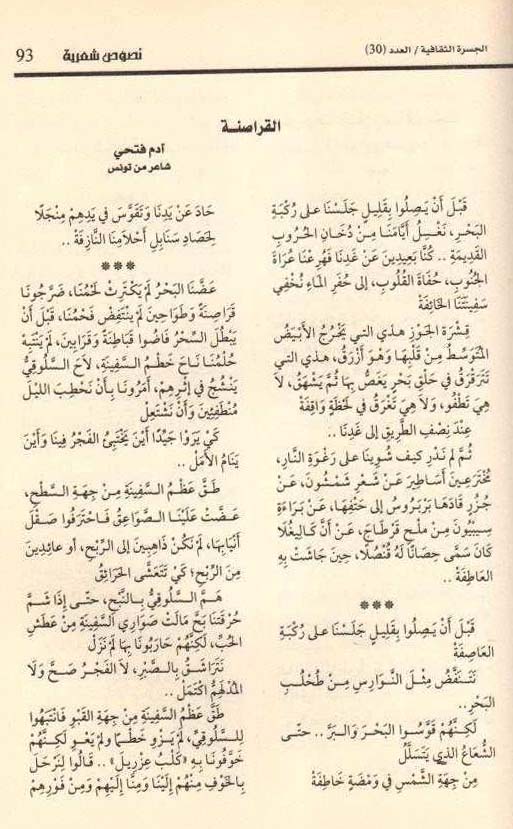 الجسرة الثقافية / العدد (30)
نصوص شعرية 93
القراصنة
آدم فتحي
شاعر من تونس
قَبْلَ أَنْ يَصِلُوا بِقَلِيلٍ جَلَسْنَا على رُكْبَةِ
البَحْرِ، نَغْسِلُ أَيَّامَنَا مِنْ دُخَانِ الحُرُوبِ
القَدِيمَةِ .. كُنَّا بَعِيدِينَ عَنْ غَدِنَا فَهُرِعْنَا عُرَاةَ
الجُنُوبِ، حُفَاةَ القُلُوبِ، إلى حُفَرِ المَاءِ نُخْفِي
سَفِينَتَنَا الخَائِفَةْ
قِشْرَةَ الجَوْزِ هذي التي يَخْرُجُ الأَبْيَضُ
المُتَوَسِّطُ مِنْ قَلْبِهَا وَهُوَ أَزْرَقُ، هذي التي
تَتَرَقْرَقُ في حَلْقِ بَحْرٍ يَغَصُّ بِهَا ثُمَّ يَشْهَقُ، لَا
هِيَ تَطْفُو، وَلَا هِيَ تَغْرَقُ في لَحْظَةٍ وَاقِفَةْ
عِنْدَ نِصْفِ الطَّرِيقِ إلى غَدِنَا ..
ثُمَّ لم نَدْرِ كيف شُوِينَا على رَغْوَةِ النَّارِ،
مُخْتَرِعِينَ أَسَاطِيرَ عَنْ شَعْرِ شَمْشُونَ، عَنْ
جُزُرٍ قَادَهَا بَرْبَرُوسُ إلى حَتْفِهَا، عَنْ بَرَاءَةِ
سِيبْيُونَ مِنْ مِلْحِ قَرْطَاجَ، عَنْ أَنَّ كَالِيغُلَا
كَانَ سَمَّى حِصَانًا لَهُ قُنْصُلًا، حِينَ جَاشَتْ بِهِ
العَاطِفَةْ ..
***
قَبْلَ أَنْ يَصِلُوا بِقَلِيلٍ جَلَسْنَا على رُكْبَةِ
العَاصِفَةْ
نَتَنَفَّضُ مِثْلَ النَّوَارِسِ مِنْ طُحْلُبِ
البَحْرِ ..
لَكِنَّهُمْ قَوَّسُوا البَحْرَ وَالبَرَّ .. حتَّى
الشُّعَاعُ الذي يَتَسَلَّلُ
مِنْ جِهَةِ الشَّمْسِ في وَمْضَةٍ خَاطِفَةْ
حَادَ عَنْ يَدِنَا وَتَقَوَّسَ في يَدِهِمْ مِنْجَلًا
لِحَصَادِ سَنَابِلِ أَحْلَامِنَا النَّازِفَةْ ..
***
عَضَّنَا البَحْرُ لَمْ يَكْتَرِثْ لَحْمُنَا، ضَرَّجُونَا
قَرَاصِنَةً وَطَوَاحِينَ لَمْ يَنْتَفِضْ فَحْمُنَا، قَبْلَ أَنْ
يَبْطُلَ السِّحْرُ فَاضُوا قَبَاطِنَةً وَقَرَابِينَ، لَمْ يَنْتَبِهْ
حُلْمُنَا نَاحَ خَطْمُ السَّفِينَةِ، لَاحَ السَّلُوقِيُّ
يَنْشِجُ في إِثْرِهِمْ، أَمَرُونَا بِأَنْ نَحْطِبَ اللَّيْلَ
مُنْطَفِئِينَ وَأَنْ نَشْتَعِلْ
كَيْ يَرَوْا جَيِّدًا أَيْنَ يَخْتَبِئُ الفَجْرُ فِينَا وَأَيْنَ
يَنَامُ الأَمَلْ ..
طَقَّ عَظْمُ السَّفِينَةِ مِنْ جِهَةِ السَّطْحِ،
عَضَّتْ عَلَيْنَا الصَّوَاعِقُ فَاحْتَرَفُوا صَقْلَ
أَنْيَابِهَا، لَمْ نَكُنْ ذَاهِبِينَ إلى الرِّبْحِ، أو عائِدِينَ
مِنَ الرِّبْحِ؛ كَيْ تَتَعَشَّى الحَرَائِقُ
هَمَّ السَّلُوقِيُّ بِالنَّبْحِ، حتَّى إِذَا شَمَّ
حُرْقَتَنَا بَحَّ مَالَتْ صَوَارِي السَّفِينَةِ مِنْ عَطَشِ
الحُبِّ، لَكِنَّهُمْ حَارَبُونَا بِهَا لَمْ نَزَلْ
نَتَرَاشَقُ بِالصَّبْرِ، لَا الفَجْرُ صَحَّ وَلَا
المُدْلَهِمُّ اكْتَمَلْ ..
طَقَّ عَظْمُ السَّفِينَةِ مِنْ جِهَةِ القَبْوِ فَانْتَبَهُوا
لِلسَّلُوقِيِّ، لَمْ يَزْوِ خَطْمًا ولَمْ يَعْوِ لَكِنَّهُمْ
خَوَّفُونَا بِهِ «كَلْبُ عِزْرِيلَ» .. قَالُوا لِنَرْحَلَ
بِالخَوْفِ مِنْهُمْ إِلَيْنَا وَمِنَّا إِلَيْهِمْ وَمِنْ فَوْرِهِمْ